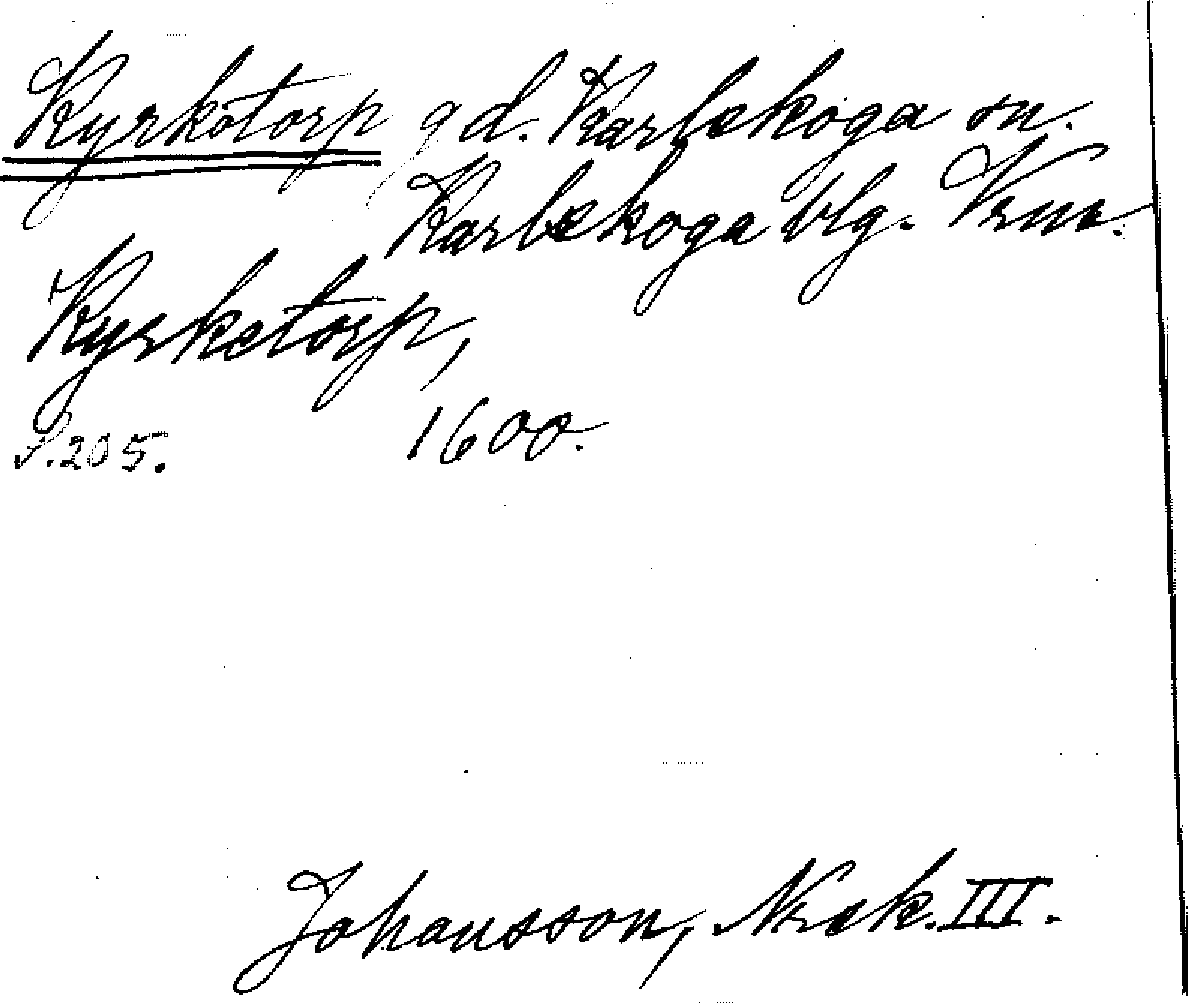 Kyrkotorp gd. Karlskoga sn.
Karlskoga blg. Vrm.
Kyrketorp,
S. 205. 1600.
Johansson, Norsk. III.